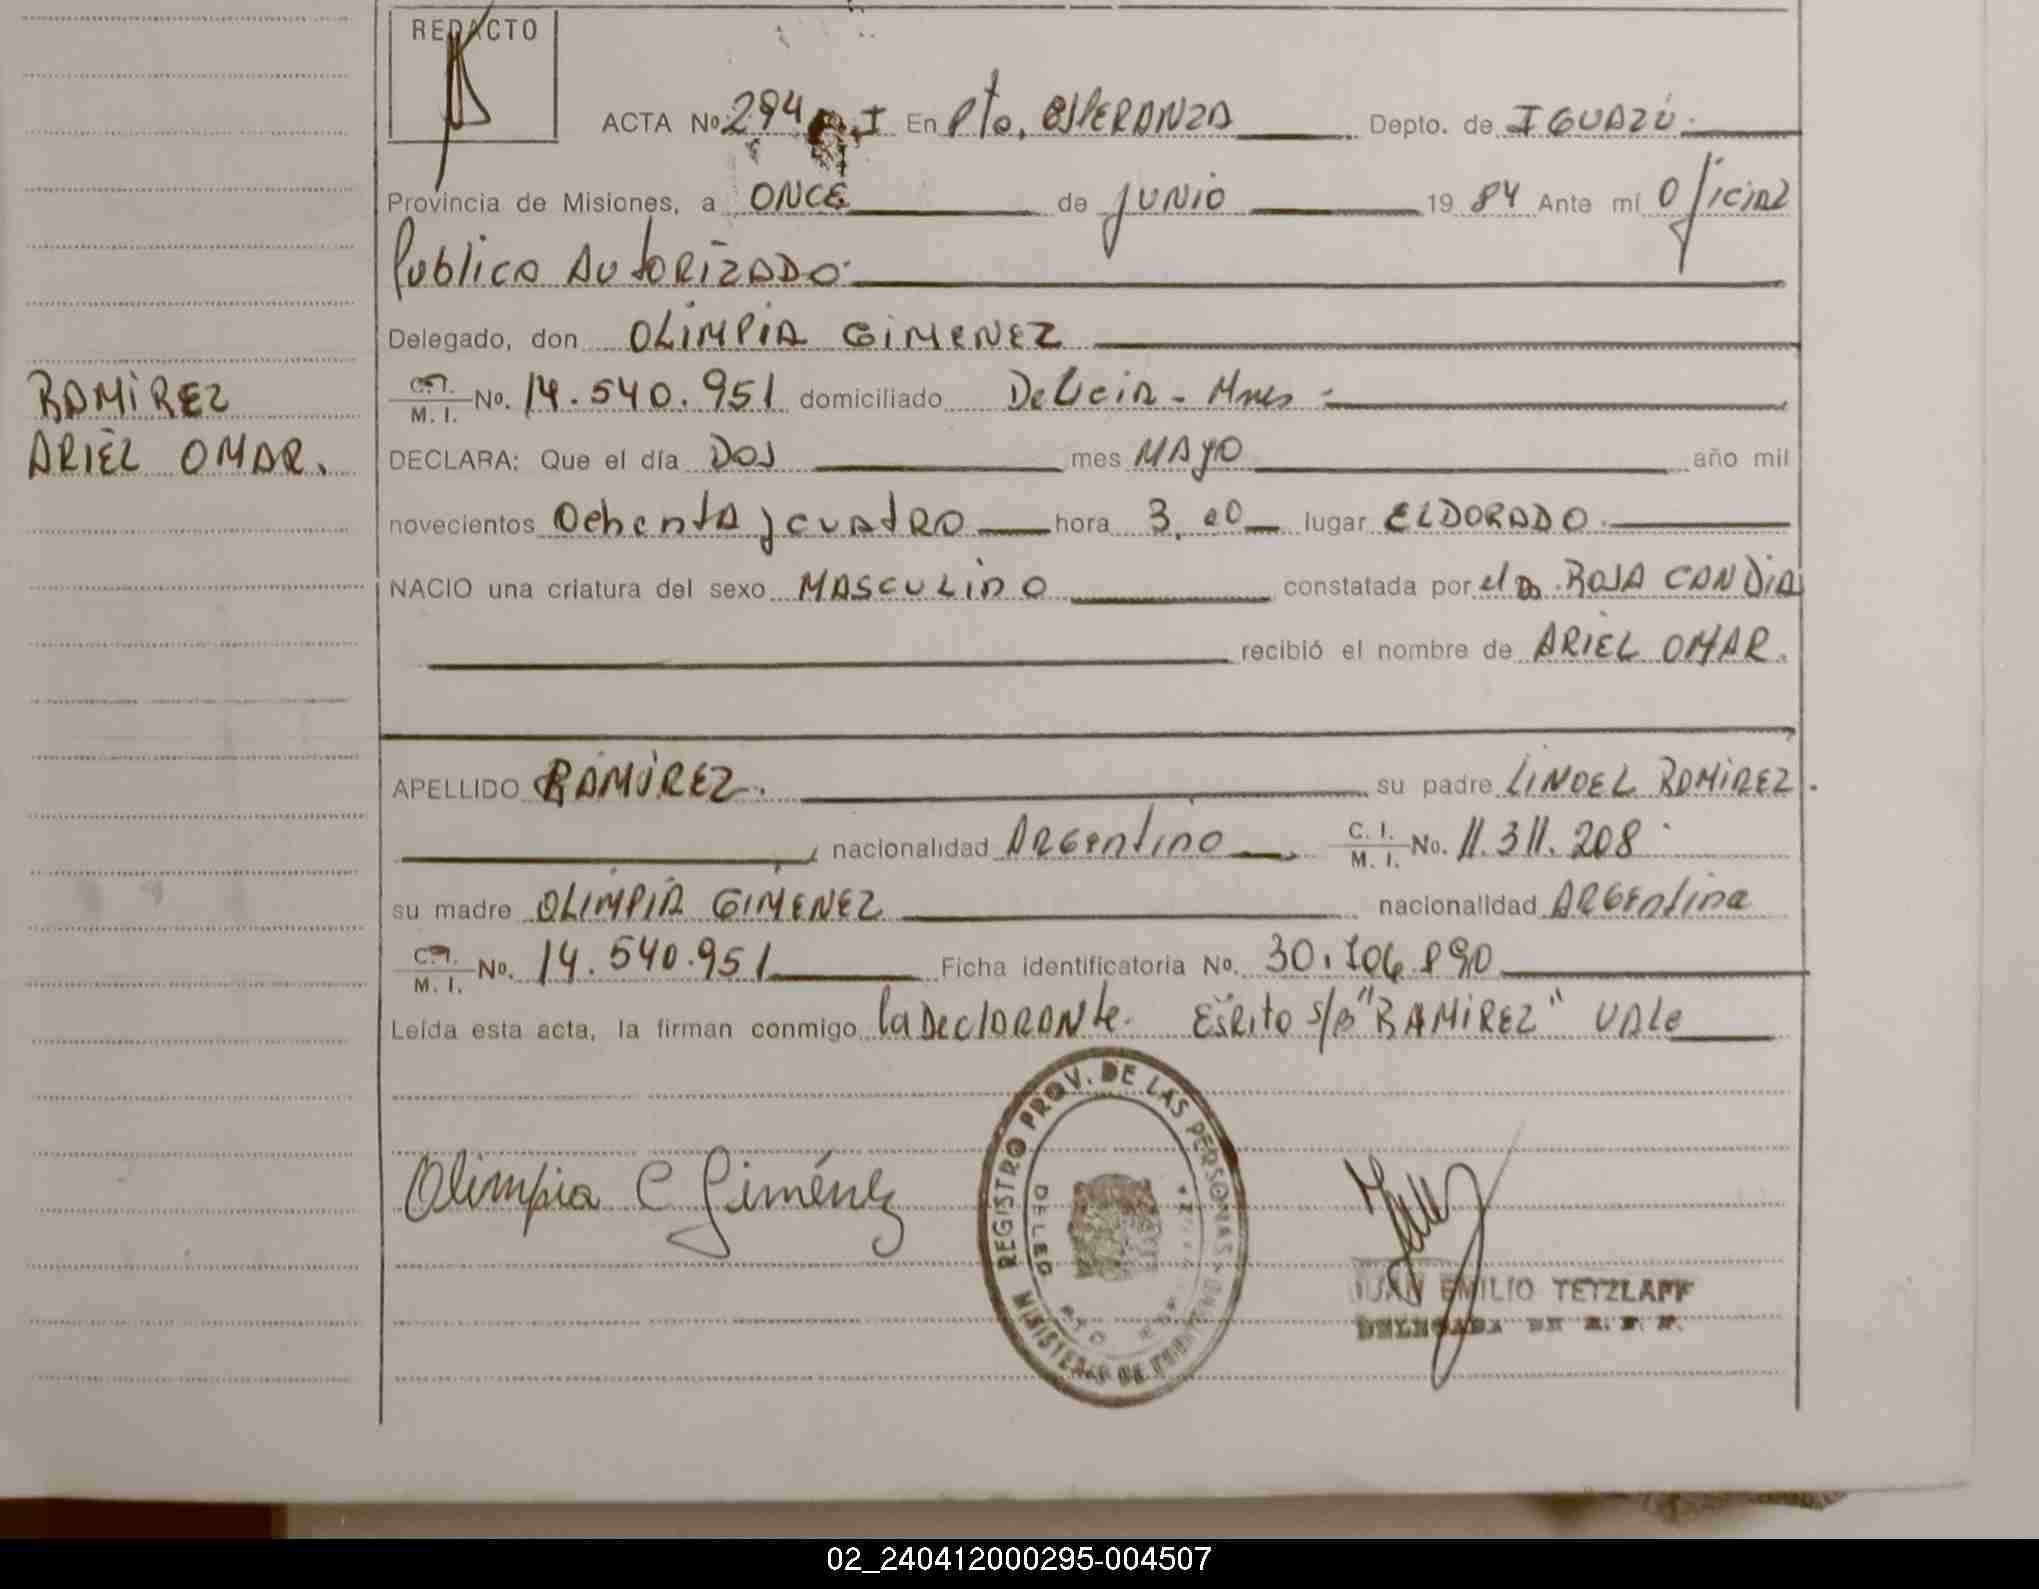 REDACTO
ACTA No. 294 I En Pto. ESPERANZA Depto. de IGUAZÚ.
Provincia de Misiones, a ONCE de JUNIO 19 84 Ante mí Oficial
Publico AUTORIZADO
Delegado, don OLIMPIA GIMENEZ
C.I. M. I. No. 14.540.951 domiciliado Delicia - Mnes
RAMIREZ
ARIEL OMAR.
DECLARA: Que el día DOS mes MAYO año mil
novecientos Ochenta y CUATRO hora 3,00 lugar ELDORADO.
NACIO una criatura del sexo MASCULINO constatada por el Dr. ROJA CANDIA
recibió el nombre de ARIEL OMAR.
APELLIDO RAMIREZ. su padre LINOEL RAMIREZ.
nacionalidad ARGentino C. I. M. I. No. 11.311.208
su madre OLIMPIA GIMENEZ nacionalidad ARGentina
C.I. M. I. No. 14.540.951 Ficha identificatoria No. 30.706.890
Leída esta acta, la firman conmigo la DeclARANte. EsRito s/b "RAMIREZ" VALe
REGISTRO PROV. DE LAS PERSONAS
MINISTERIO DE
PTO
Olimpia C Giménez
JUAN EMILIO TETZLAFF
02_240412000295-004507